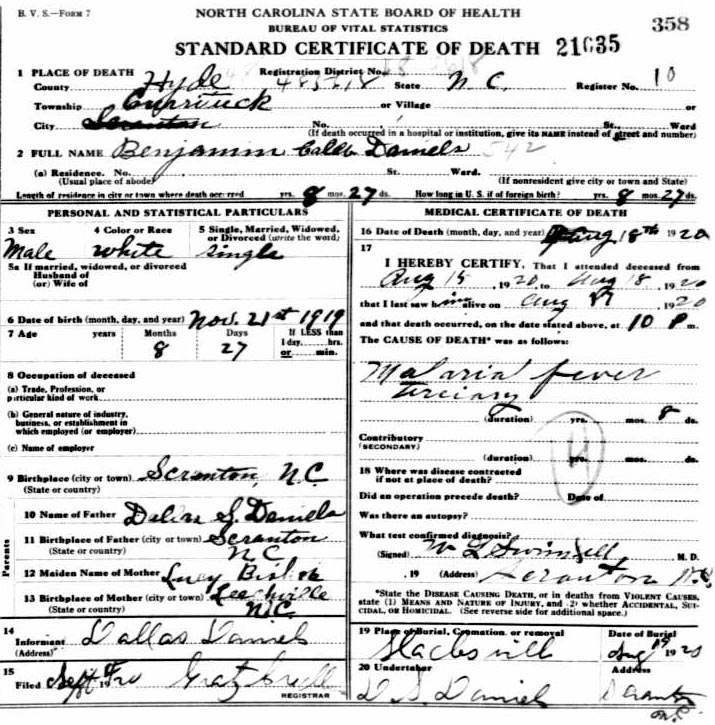 B. V. S.—FORM 7
NORTH CAROLINA STATE BOARD OF HEALTH
BUREAU OF VITAL STATISTICS
358
STANDARD CERTIFICATE OF DEATH 21035
1 PLACE OF DEATH Registration District No.
County Hyde State N. C. Register No. 10
Township Currituck or Village or
City Scranton No. St., Ward
(If death occurred in a hospital or institution, give its NAME instead of street and number)
2 FULL NAME Benjamin Caleb Daniels 542
(a) Residence. No. St. Ward.
(Usual place of abode) (If nonresident give city or town and State)
Length of residence in city or town where death occurred yrs. 8 mos. 27 ds. How long in U. S. if of foreign birth? yrs. 8 mos. 27 ds.
PERSONAL AND STATISTICAL PARTICULARS
3 Sex 4 Color or Race 5 Single, Married, Widowed, or Divorced (write the word)
Male White Single
5a If married, widowed, or divorced
Husband of
(or) Wife of
6 Date of birth (month, day, and year) Nov. 21st 1919
7 Age years Months Days If LESS than
1 day......hrs.
8 27 or......min.
8 Occupation of deceased
(a) Trade, Profession, or
particular kind of work
(b) General nature of industry,
business, or establishment in
which employed (or employer)
(c) Name of employer
9 Birthplace (city or town) Scranton, N.C.
(State or country)
Parents
10 Name of Father S. Daniels
11 Birthplace of Father (city or town) Scranton
(State or country) N C
12 Maiden Name of Mother Lucy
13 Birthplace of Mother (city or town) Leechville
(State or country) N.C.
14
Informant Dallas Daniels
(Address)
15
Filed Sept 19 20 Gratz Credle
REGISTRAR
MEDICAL CERTIFICATE OF DEATH
16 Date of Death (month, day, and year) Aug 18th 1920
17
I HEREBY CERTIFY, That I attended deceased from
Aug 15, 1920, to Aug 18, 1920
that I last saw him alive on Aug 1920
and that death occurred, on the date stated above, at 10 P m.
The CAUSE OF DEATH* was as follows:
Malaria fever
Terciary
(duration) yrs. mos. 8 ds.
Contributory
(SECONDARY)
(duration) yrs. mos. ds.
4
18 Where was disease contracted
if not at place of death?
Did an operation precede death? Date of
Was there an autopsy?
What test confirmed diagnosis?
(Signed) W L Swindell, M. D.
, 19 (Address) Scranton N.C.
*State the DISEASE CAUSING DEATH, or in deaths from VIOLENT CAUSES,
state (1) MEANS AND NATURE OF INJURY, and (2) whether ACCIDENTAL, SUI-
CIDAL, OR HOMICIDAL. (See reverse side for additional space.)
19 Place of Burial, Cremation, or removal Date of Burial
Aug 19 1920
20 Undertaker Address
D. S. Daniel Scranton
N.C.